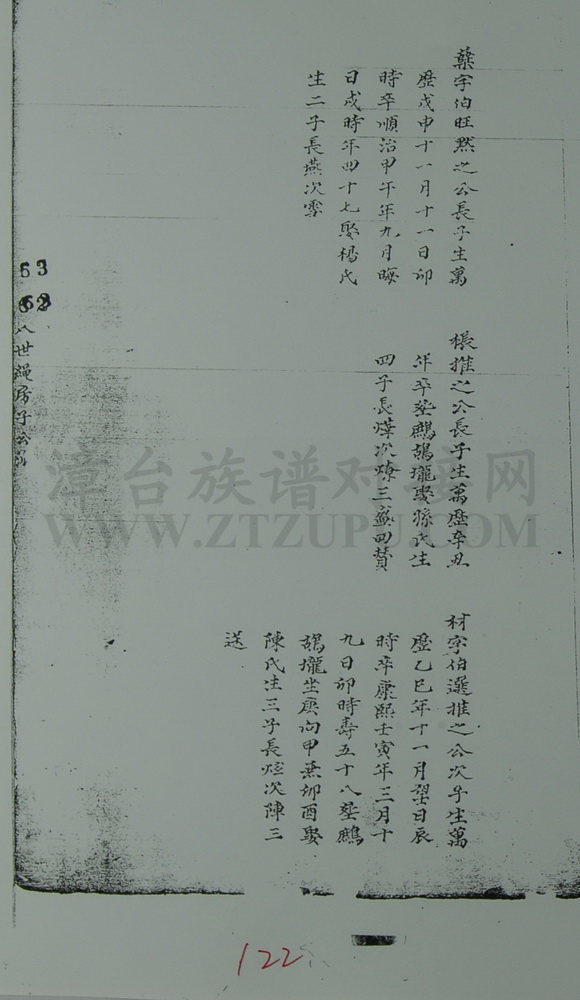 葉字伯旺然之公長子生萬
歷戊申十一月十一日卯
時卒順治甲午年九月晦
日戌時年四十七娶楊氏
生二子長燕次雪
樣推之公長子生萬歷辛丑
年卒塟鷓鴣壠娶孫氏生
四子長燁次燎三盛四贊
材字伯選推之公次子生萬
歷乙巳年十一月望日辰
時卒康熙壬寅年三月十
九日卯時壽五十八塟鷓
鴣壠坐庚向甲兼卯酉娶
陳氏生三子長炫次陳三
送
63
62
八世 房子公
漳台族谱对接网
WWW.ZTZUPU.COM
122